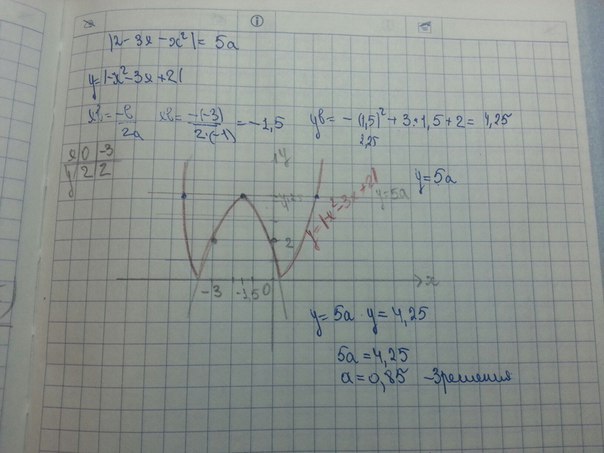 |2-3x-x²| = 5a
y=|-x²-3x+2|
xв = -b/2a  xв = -(-3)/2·(-1) = -1,5  yв = -(1,5)²+3·1,5+2 = 4,25
2,25
x 0 -3
y 2 2
y
y=5a
y=5a
y=|-x²-3x+2|
2
-3 -1,5 0 x
y=5a y=4,25
5a=4,25
a=0,85 -3 решения